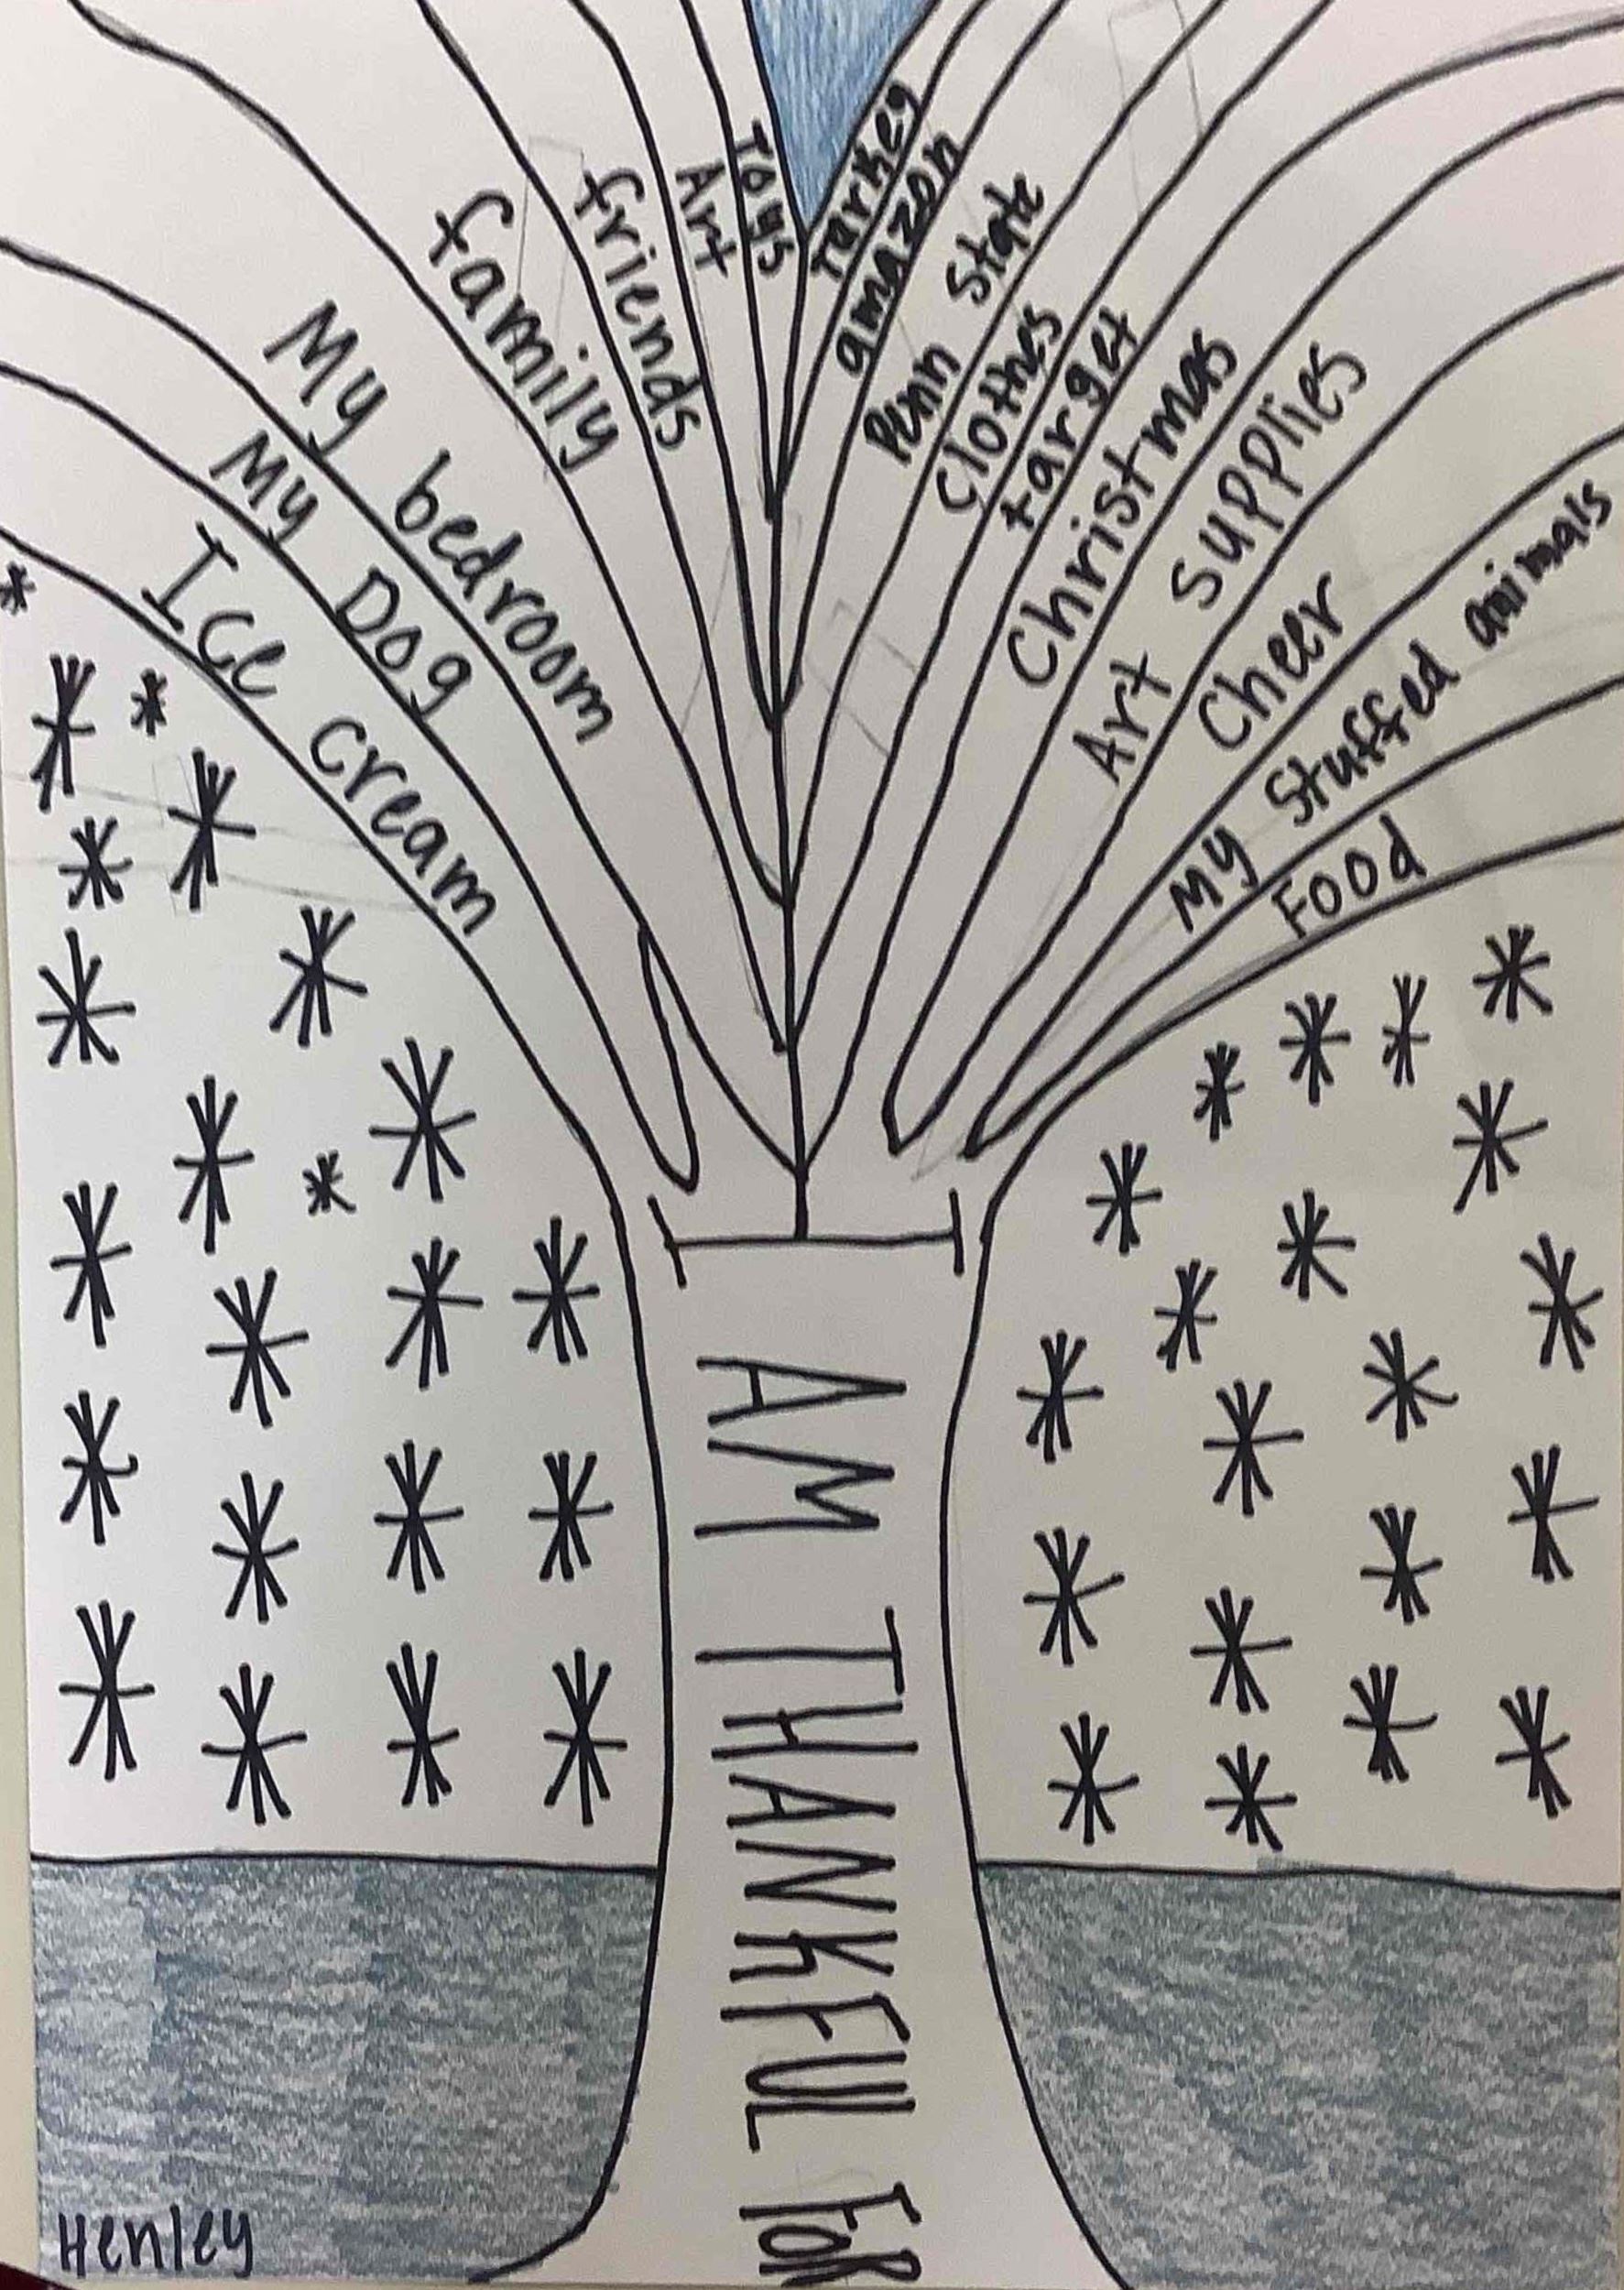 Ice cream
My Dog
My bedroom
family
friends
Art
Toys
Turkey
amazon
Penn State
Clothes
target
Christmas
Art supplies
Cheer
My Stuffed animals
Food
I AM THANKFUL FOR
Henley